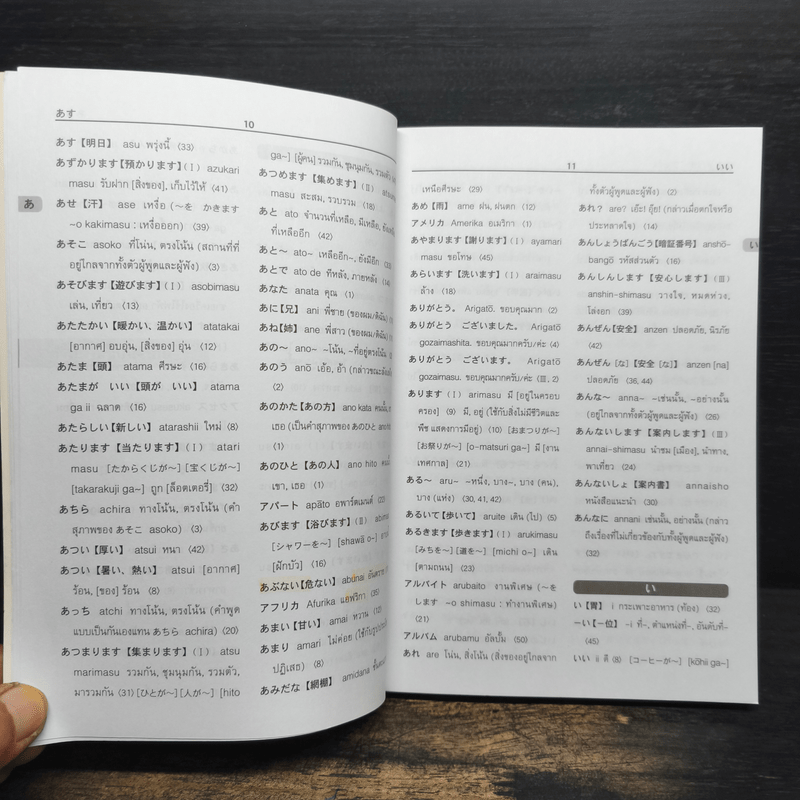 あす
10
あす【明日】 asu พรุ่งนี้ (33)
あずかります【預かります】(Ⅰ) azukari
masu รับฝาก [สิ่งของ], เก็บไว้ให้ (41)
あせ【汗】 ase เหงื่อ (〜を かきます
~o kakimasu : เหงื่อออก) (39)
あそこ asoko ที่โน่น, ตรงโน้น (สถานที่ที่
อยู่ไกลจากทั้งตัวผู้พูดและผู้ฟัง) (3)
あそびます【遊びます】(Ⅰ) asobimasu
เล่น, เที่ยว (13)
あたたかい【暖かい、温かい】 atatakai
[อากาศ] อบอุ่น, [สิ่งของ] อุ่น (12)
あたま【頭】 atama ศีรษะ (16)
あたまが いい【頭が いい】 atama
ga ii ฉลาด (16)
あたらしい【新しい】 atarashii ใหม่ (8)
あたります【当たります】(Ⅰ) atari
masu [たからくじが〜] [宝くじが〜]
[takarakuji ga~] ถูก [ล็อตเตอรี่] (32)
あちら achira ทางโน้น, ตรงโน้น (คำ
สุภาพของ あそこ asoko) (3)
あつい【厚い】 atsui หนา (42)
あつい【暑い、熱い】 atsui [อากาศ]
ร้อน, [ของ] ร้อน (8)
あっち atchi ทางโน้น, ตรงโน้น (คำพูด
แบบเป็นกันเองแทน あちら achira) (20)
あつまります【集まります】(Ⅰ) atsu
marimasu รวมกัน, ชุมนุมกัน, รวมตัว,
มารวมกัน (31) [ひとが〜] [人が〜] [hito
ga~] [ผู้คน] รวมกัน, ชุมนุมกัน, รวมตัว
あつめます【集めます】(Ⅱ) atsu
masu สะสม, รวบรวม (18)
あと ato จำนวนที่เหลือ, มีเหลือ,
ที่เหลืออีก (42)
あと〜 ato~ เหลืออีก~, ยังมีอีก
あとで ato de ทีหลัง, ภายหลัง (14)
あなた anata คุณ (1)
あに【兄】 ani พี่ชาย (ของผม/ดิฉัน)
あね【姉】 ane พี่สาว (ของผม/ดิฉัน)
あの〜 ano~ ~โน้น, ~ที่อยู่ตรงโน้น
あのう anō เอ้อ, อ้า (กล่าวขณะ
(2)
あのかた【あの方】 ano kata คนนั้น,
เธอ (เป็นคำสุภาพของ あのひと ano hito)
(1)
あのひと【あの人】 ano hito คนนั้น,
เขา, เธอ (1)
アパート apāto อพาร์ตเมนต์ (23)
あびます【浴びます】(Ⅱ) abima
[シャワーを〜] [shawā o~] อาบ
[ฝักบัว] (16)
あぶない【危ない】 abunai อันตราย
アフリカ Afurika แอฟริกา (35)
あまい【甘い】 amai หวาน (12)
あまり amari ไม่ค่อย (ใช้กับรูป
ปฏิเสธ) (8)
あみだな【網棚】 amidana
あ
11
いい
เหนือศีรษะ (29)
あめ【雨】 ame ฝน, ฝนตก (12)
アメリカ Amerika อเมริกา (1)
あやまります【謝ります】(Ⅰ) ayamari
masu ขอโทษ (45)
あらいます【洗います】(Ⅰ) araimasu
ล้าง (18)
ありがとう。 Arigatō. ขอบคุณมาก (2)
ありがとう ございました。 Arigatō
gozaimashita. ขอบคุณมากครับ/ค่ะ (4)
ありがとう ございます。 Arigatō
gozaimasu. ขอบคุณมากครับ/ค่ะ (Ⅲ, 2)
あります(Ⅰ) arimasu มี [อยู่ในครอบ
ครอง] (9) มี, อยู่ (ใช้กับสิ่งไม่มีชีวิตและ
พืช แสดงการมีอยู่) (10) [おまつりが〜]
[お祭りが〜] [o-matsuri ga~] มี [งาน
เทศกาล] (21)
ある〜 aru~ ~หนึ่ง, บาง~, บาง (คน),
บาง (แห่ง) (30, 41, 42)
あるいて【歩いて】 aruite เดิน (ไป) (5)
あるきます【歩きます】(Ⅰ) arukimasu
[みちを〜] [道を〜] [michi o~] เดิน
[ตามถนน] (23)
アルバイト arubaito งานพิเศษ (〜を
します ~o shimasu : ทำงานพิเศษ)
(21)
アルバム arubamu อัลบั้ม (50)
あれ are โน่น, สิ่งโน้น (สิ่งของอยู่ไกลจาก
ทั้งตัวผู้พูดและผู้ฟัง) (2)
あれ? are? เอ๊ะ! อุ๊ย! (กล่าวเมื่อตกใจหรือ
ประหลาดใจ) (14)
あんしょうばんごう【暗証番号】 anshō-
bangō รหัสส่วนตัว (16)
あんしんします【安心します】(Ⅲ)
anshin-shimasu วางใจ, หมดห่วง,
โล่งอก (39)
あんぜん【安全】 anzen ปลอดภัย, นิรภัย
(42)
あんぜん [な]【安全 [な]】 anzen [na]
ปลอดภัย (36, 44)
あんな〜 anna~ ~เช่นนั้น, ~อย่างนั้น
(อยู่ไกลจากทั้งตัวผู้พูดและผู้ฟัง) (26)
あんないします【案内します】(Ⅲ)
annai-shimasu นำชม [เมือง], นำทาง,
พาเที่ยว (24)
あんないしょ【案内書】 annaisho
หนังสือแนะนำ (30)
あんなに annani เช่นนั้น, อย่างนั้น (กล่าว
ถึงเรื่องที่ไม่เกี่ยวข้องกับทั้งผู้พูดและผู้ฟัง)
(32)
い
い【胃】 i กระเพาะอาหาร (ท้อง) (32)
ー い【ー位】 -i ที่~, ตำแหน่งที่~, อันดับที่~
(45)
いい ii ดี (8) [コーヒーが〜] [kōhii ga~]
い